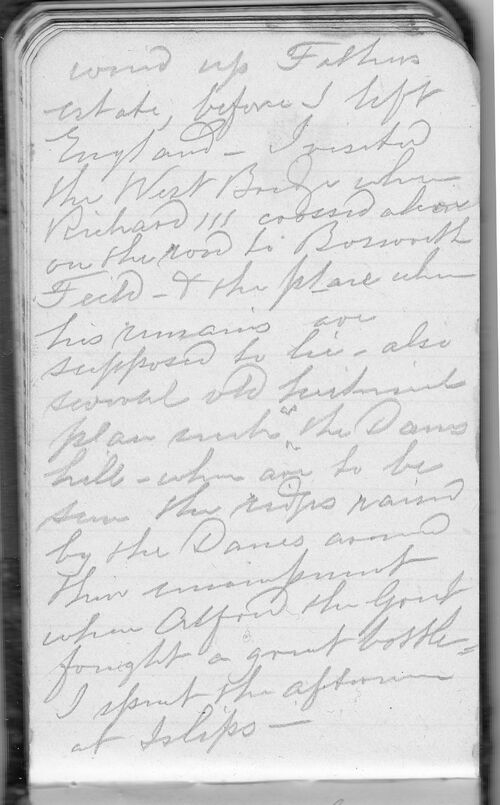 wind up Fathers
estate, before I left
England - I visited
the West Bridge where
Richard III crossed
on the road to Bosworth
Feild - & the place where
his remains are
supposed to lie - also
several old historical
places such as the Danes
hill - where are to be
seen the ridges raised
by the Danes around
their encampment
when Alfred the Great
fought a great battle -
I spent the afternoon
at Islips -